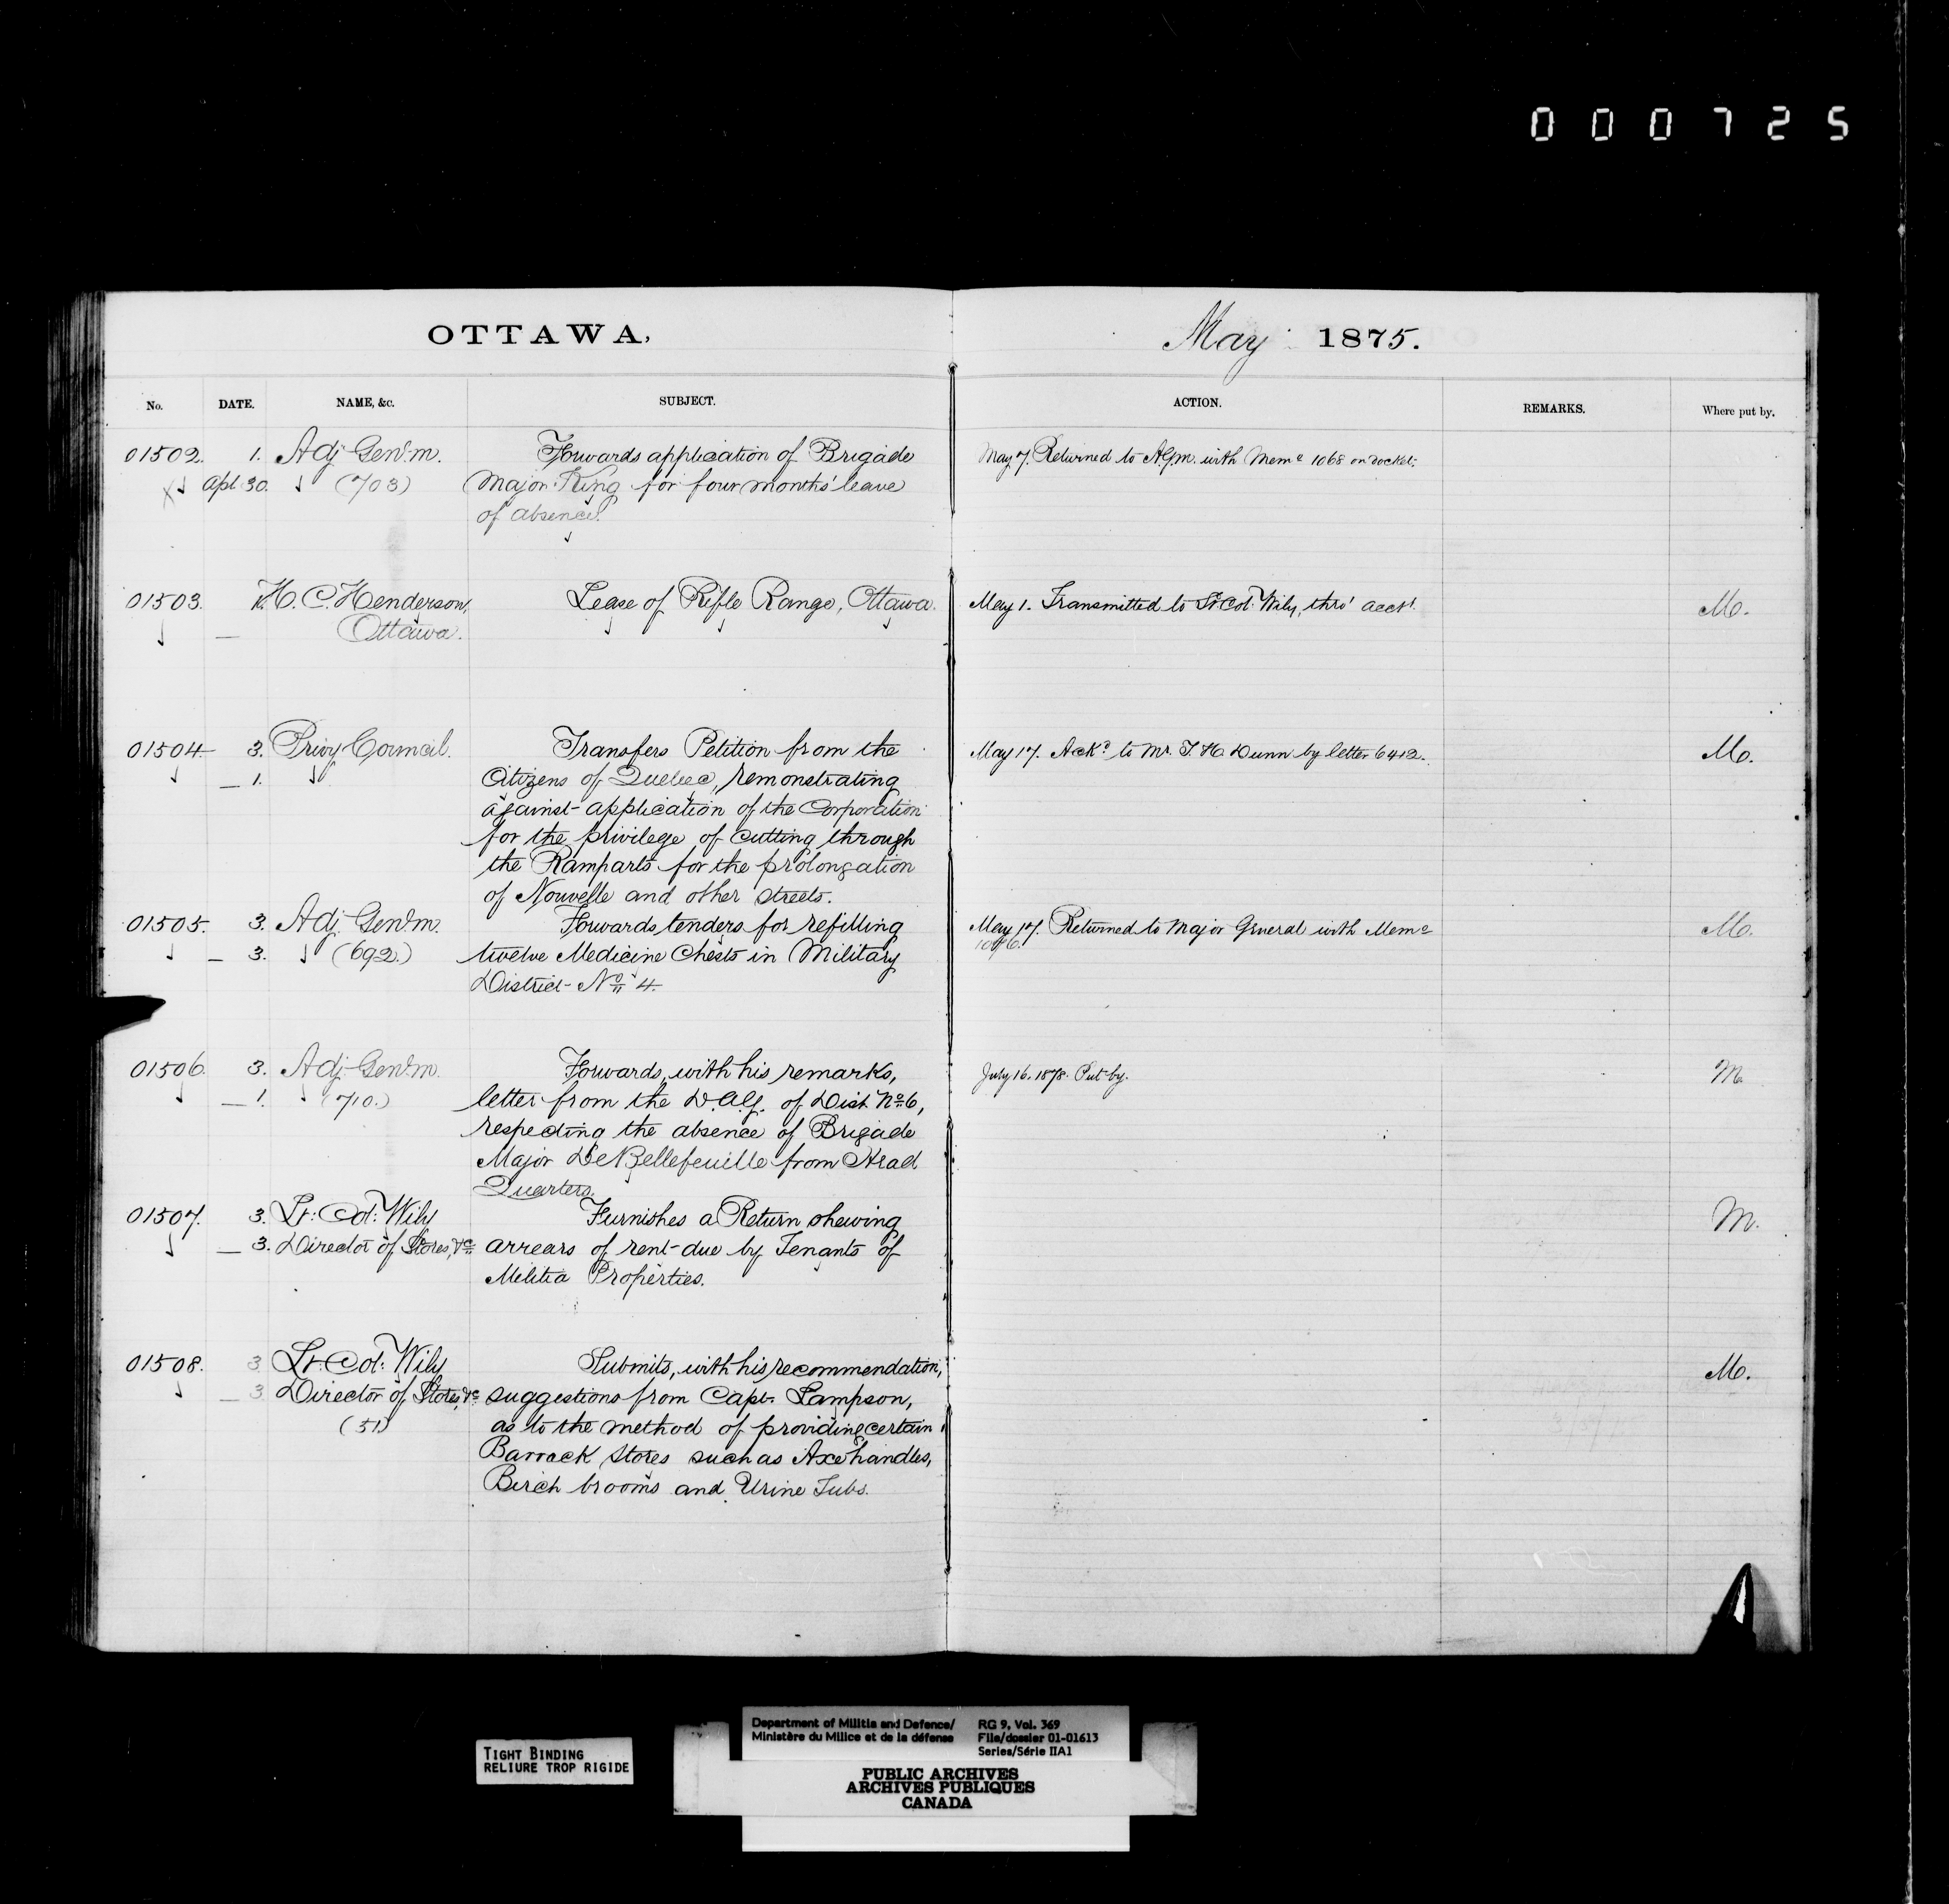 000725
OTTAWA,
May 1875.
No. DATE. NAME, &c. SUBJECT. ACTION. REMARKS. Where put by.
01502. 1. Adj. Genl. m. Forwards application of Brigade May 7. Returned to A.G.m. with Memo 1068 on docket.
Apl 30. (703) Major King for four months' leave
of absence.
01503. 1. H. C. Henderson, Lease of Rifle Range, Ottawa. May 1. Transmitted to Lt Col. Wily, thro' acct. M.
— Ottawa.
01504 3. Privy Council. Transfers Petition from the May 17. Ackd to Mr. T H Dunn by letter 6412. M.
— 1. Citizens of Quebec, remonstrating
against application of the Corporation
for the privilege of cutting through
the Ramparts for the prolongation
of Nouvelle and other streets.
01505. 3. Adj. Genl. m. Forwards tenders for refilling May 17. Returned to Major General with Memo M.
— 3. (692.) twelve Medicine Chests in Military
District No. 4.
01506 3. Adj. Genl. m. Forwards, with his remarks, July 16. 1878. Put by. M.
— 1. (710.) letter from the D.A.G. of Dist. No. 6,
respecting the absence of Brigade
Major DeBellefeuille from Head
Quarters.
01507. 3. Lt: Col: Wily Furnishes a Return shewing M.
— 3. Director of Stores, &c arrears of rent due by Tenants of
Militia Properties.
01508. 3 Lt: Col: Wily Submits, with his recommendation, M.
— 3 Director of Stores, &c suggestions from Capt. Lampson,
(51) as to the method of providing certain
Barrack Stores such as Axe handles,
Birch brooms and Urine Tubs.
TIGHT BINDING
RELIURE TROP RIGIDE
Department of Militia and Defence/ RG 9, Vol. 369
Ministère du Milice et de la défense File/dossier 01-01613
Series/Série IIA1
PUBLIC ARCHIVES
ARCHIVES PUBLIQUES
CANADA